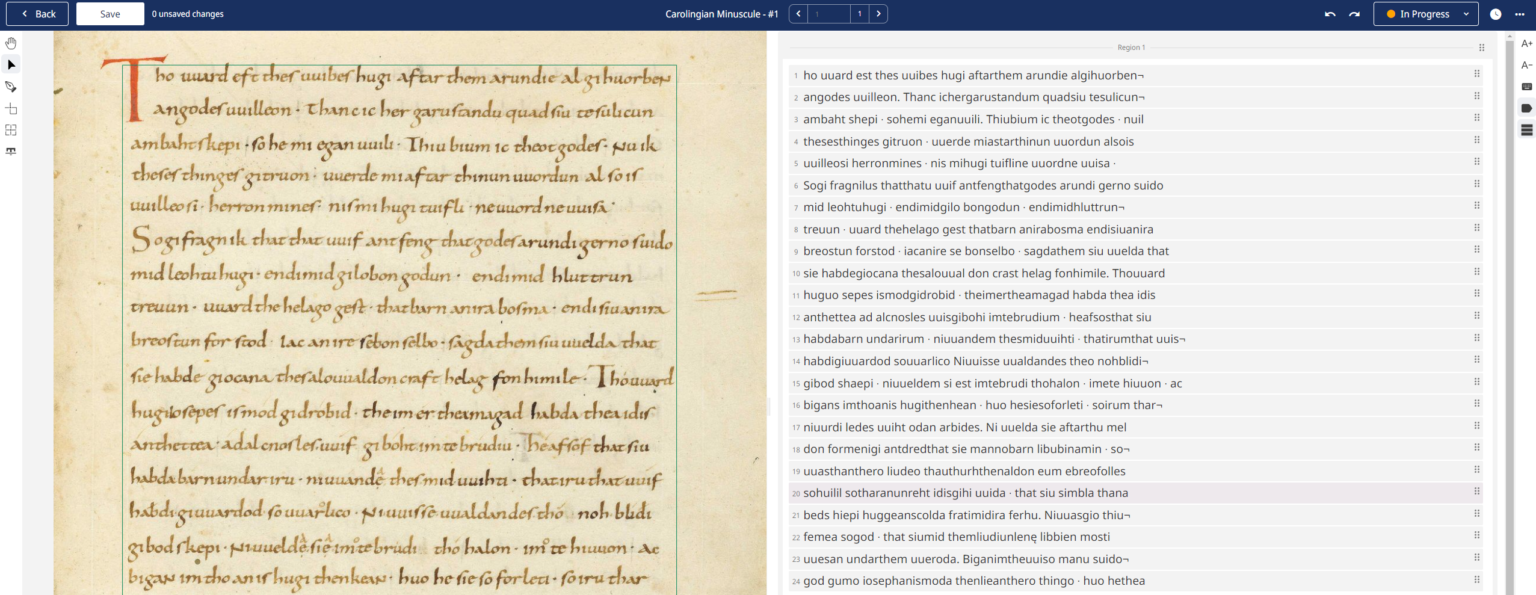 Back
Save
0 unsaved changes
Carolingian Minuscule - #1
1
1
In Progress
Tho uuard eft thes uuibes hugi aftar them arundie al gihuorben
an godes uuilleon · Thanc ic her garu standu quad siu te sulicun
ambahtskepi · so he mi egan uuili · Thiu bium ic theotgodes · Nu ik
theses thinges gitruon · uuerde mi aftar thinun uuordun al so is
uuilleo si · herron mines · nis mi hugi tuifli · ne uuord ne uuisa ·
So gifragn ik that that uuif antfeng that godes arundi gerno suido
mid leohtu hugi · endi mid gilobon godun · endi mid hluttrun
treuun · uuard the helago gest · that barn an ira bosma · endi siu an ira
breostun forstod · Iac an ire sebon selbo · sagda them siu uuelda that
sie habde giocana thes alouualdon craft helag fon himile · Tho uuard
hugi Iosepes is mod gidrobid · the im er thea magad habda thea idis
anthettea · adalcnosles uuif giboht im te brudiu · He afsof that siu
habda barn undar iru · ni uuande thes mid uuihti · that iru that uuif
habdi giuuardod so uuarlico · Ni uuisse uualdandes tho noh blidi
gibodskepi · Ni uuelde sie imo te brudi tho halon · imo te hiuuon · ac
bigan im tho an is hugi thenkean · huo he sie so forleti · so iru thar
Region 1
1 ho uuard est thes uuibes hugi aftarthem arundie algihuorben¬
2 angodes uuilleon. Thanc ichergarustandum quadsiu tesulicun¬
3 ambaht shepi · sohemi eganuuili. Thiubium ic theotgodes · nuil
4 thesesthinges gitruon · uuerde miastarthinun uuordun alsois
5 uuilleosi herronmines · nis mihugi tuifline uuordne uuisa ·
6 Sogi fragnilus thatthatu uuif antfengthatgodes arundi gerno suido
7 mid leohtuhugi · endimidgilo bongodun · endimidhluttrun¬
8 treuun · uuard thehelago gest thatbarn anirabosma endisiuanira
9 breostun forstod · iacanire se bonselbo · sagdathem siu uuelda that
10 sie habdegiocana thesalouual don crast helag fonhimile. Thouuard
11 huguo sepes ismodgidrobid · theimertheamagad habda thea idis
12 anthettea ad alcnosles uuisgibohi imtebrudium · heafsosthat siu
13 habdabarn undarirum · niuuandem thesmiduuihti · thatirumthat uuis¬
14 habdigiuuardod souuarlico Niuuisse uualdandes theo nohblidi¬
15 gibod shaepi · niuueldem si est imtebrudi thohalon · imete hiuuon · ac
16 bigans imthoanis hugithenhean · huo hesiesoforleti · soirum thar¬
17 niuurdi ledes uuiht odan arbides. Ni uuelda sie aftarthu mel
18 don formenigi antdredthat sie mannobarn libubinamin · so¬
19 uuasthanthero liudeo thauthurhthenaldon eum ebreofolles
20 sohuilil sotharanunreht idisgihi uuida · that siu simbla thana
21 beds hiepi huggeanscolda fratimidira ferhu. Niuuasgio thiu¬
22 femea sogod · that siumid themliudiunlenę libbien mosti
23 uuesan undarthem uueroda. Biganimtheuuiso manu suido¬
24 god gumo iosephanismoda thenlieanthero thingo · huo hethea
A+
A-